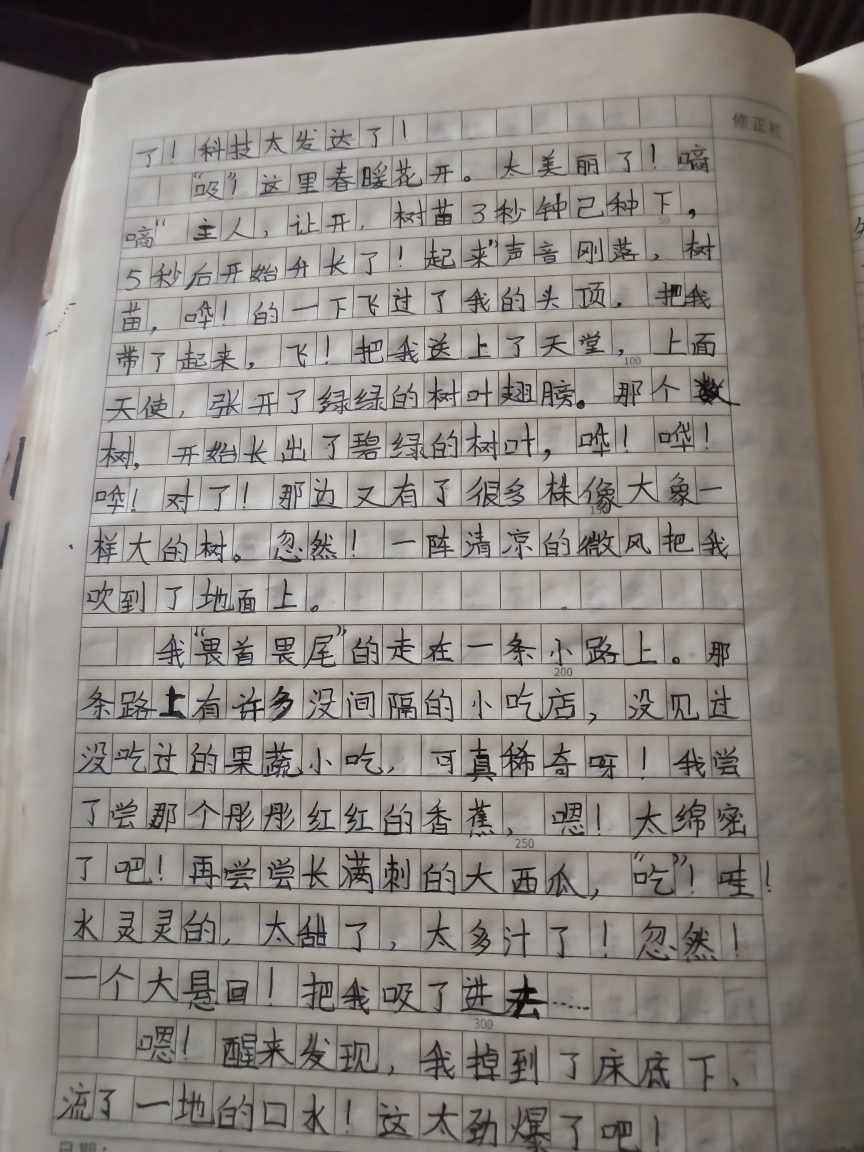 修正栏
了！科技太发达了！
“吸”！这里春暖花开。太美丽了！嘀
嘀“主人，让开，树苗3秒钟已种下，
5秒后开始升长了！起来”声音刚落，树
苗，哗！的一下飞过了我的头顶，把我
带了起来，飞！把我送上了天堂，上面
100
天使，张开了绿绿的树叶翅膀。那个
树，开始长出了碧绿的树叶，哗！哗！
哗！对了！那边又有了很多株像大象一
样大的树。忽然！一阵清凉的微风把我
吹到了地面上。
我“畏首畏尾”的走在一条小路上。那
200
条路上有许多没间隔的小吃店，没见过
没吃过的果蔬小吃，可真稀奇呀！我尝
了尝那个彤彤红红的香蕉，嗯！太绵密
250
了吧！再尝尝长满刺的大西瓜，“吃”！哇！
水灵灵的，太甜了，太多汁了！忽然！
一个大悬回！把我吸了进去……
300
嗯！醒来发现，我掉到了床底下、
流了一地的口水！这太劲爆了吧！
日期：